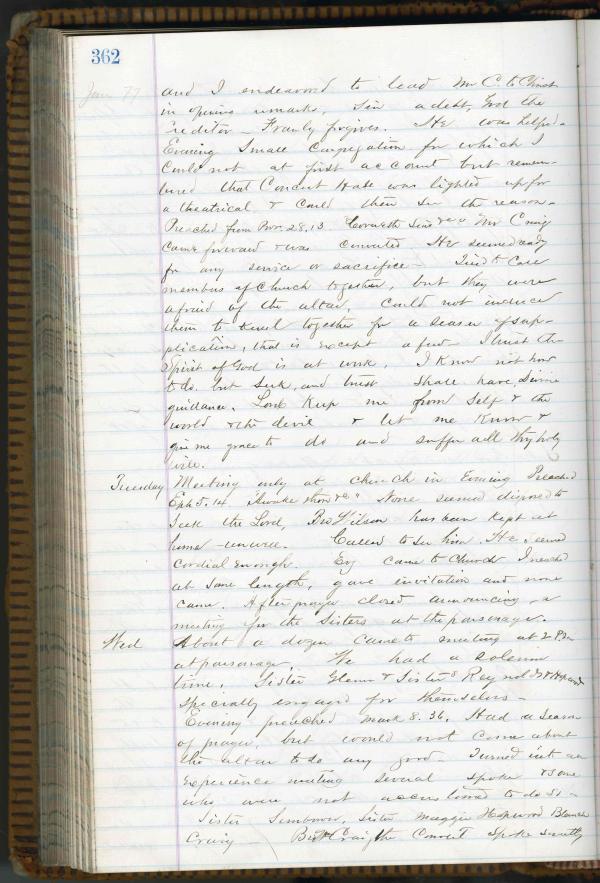 362
Jan 77 and I endeavord to lead Mr C to Christ
in opening remarks, Sin a debt, God the
Creditor – Frankly forgives. He was helped –
Evening Small Congregation for which I
Could not at first account but remem-
bered that Concert Hall was lighted up for
a theatrical & could then see the reason –
Preached from Prov. 28.13 Covereth Sins &c Mr Craig
came forward & was converted He seemed ready
for any service or sacrifice – Tried to Call
members of Church together, but they were
afraid of the altar, Could not induce
them to kneel together for a season of sup-
plication, that is except a few – I trust the
Spirit of God is at work, I Know not how
to do but Seek, and trust Shall have, Divine
guidance. Lord Keep me from Self & the
world & the devil & let me Know &
give me grace to do and suffer all thy holy
will.
Tuesday Meeting only at church in Evening Preached
Eph 5.14 "Awake thou &c" None seemed disposed to
Seek the Lord, Bro Wilson has been Kept at
home – unwell. Called to See him. He seemed
cordial enough. Evg came to Church I preached
at Some length, gave invitation and none
came. After prayer closed announcing a
meeting for the Sisters at the parsonage.
Wed About a dozen came to meeting at 2 Pm
at parsonage, We had a Solemn
time, Sister Glenn & Sisters Reynolds & Hopwood
specially engaged for themselves –
Evening preached Mark 8.36. Had a Season
of prayer, but would not come about
the altar to do any good – Turned into an
Experience meeting several spoke & some
who were not accustomed to do so –
Sister Sister Maggie Hopwood Blanch
Craig – Craig the Convert Spoke sweetly